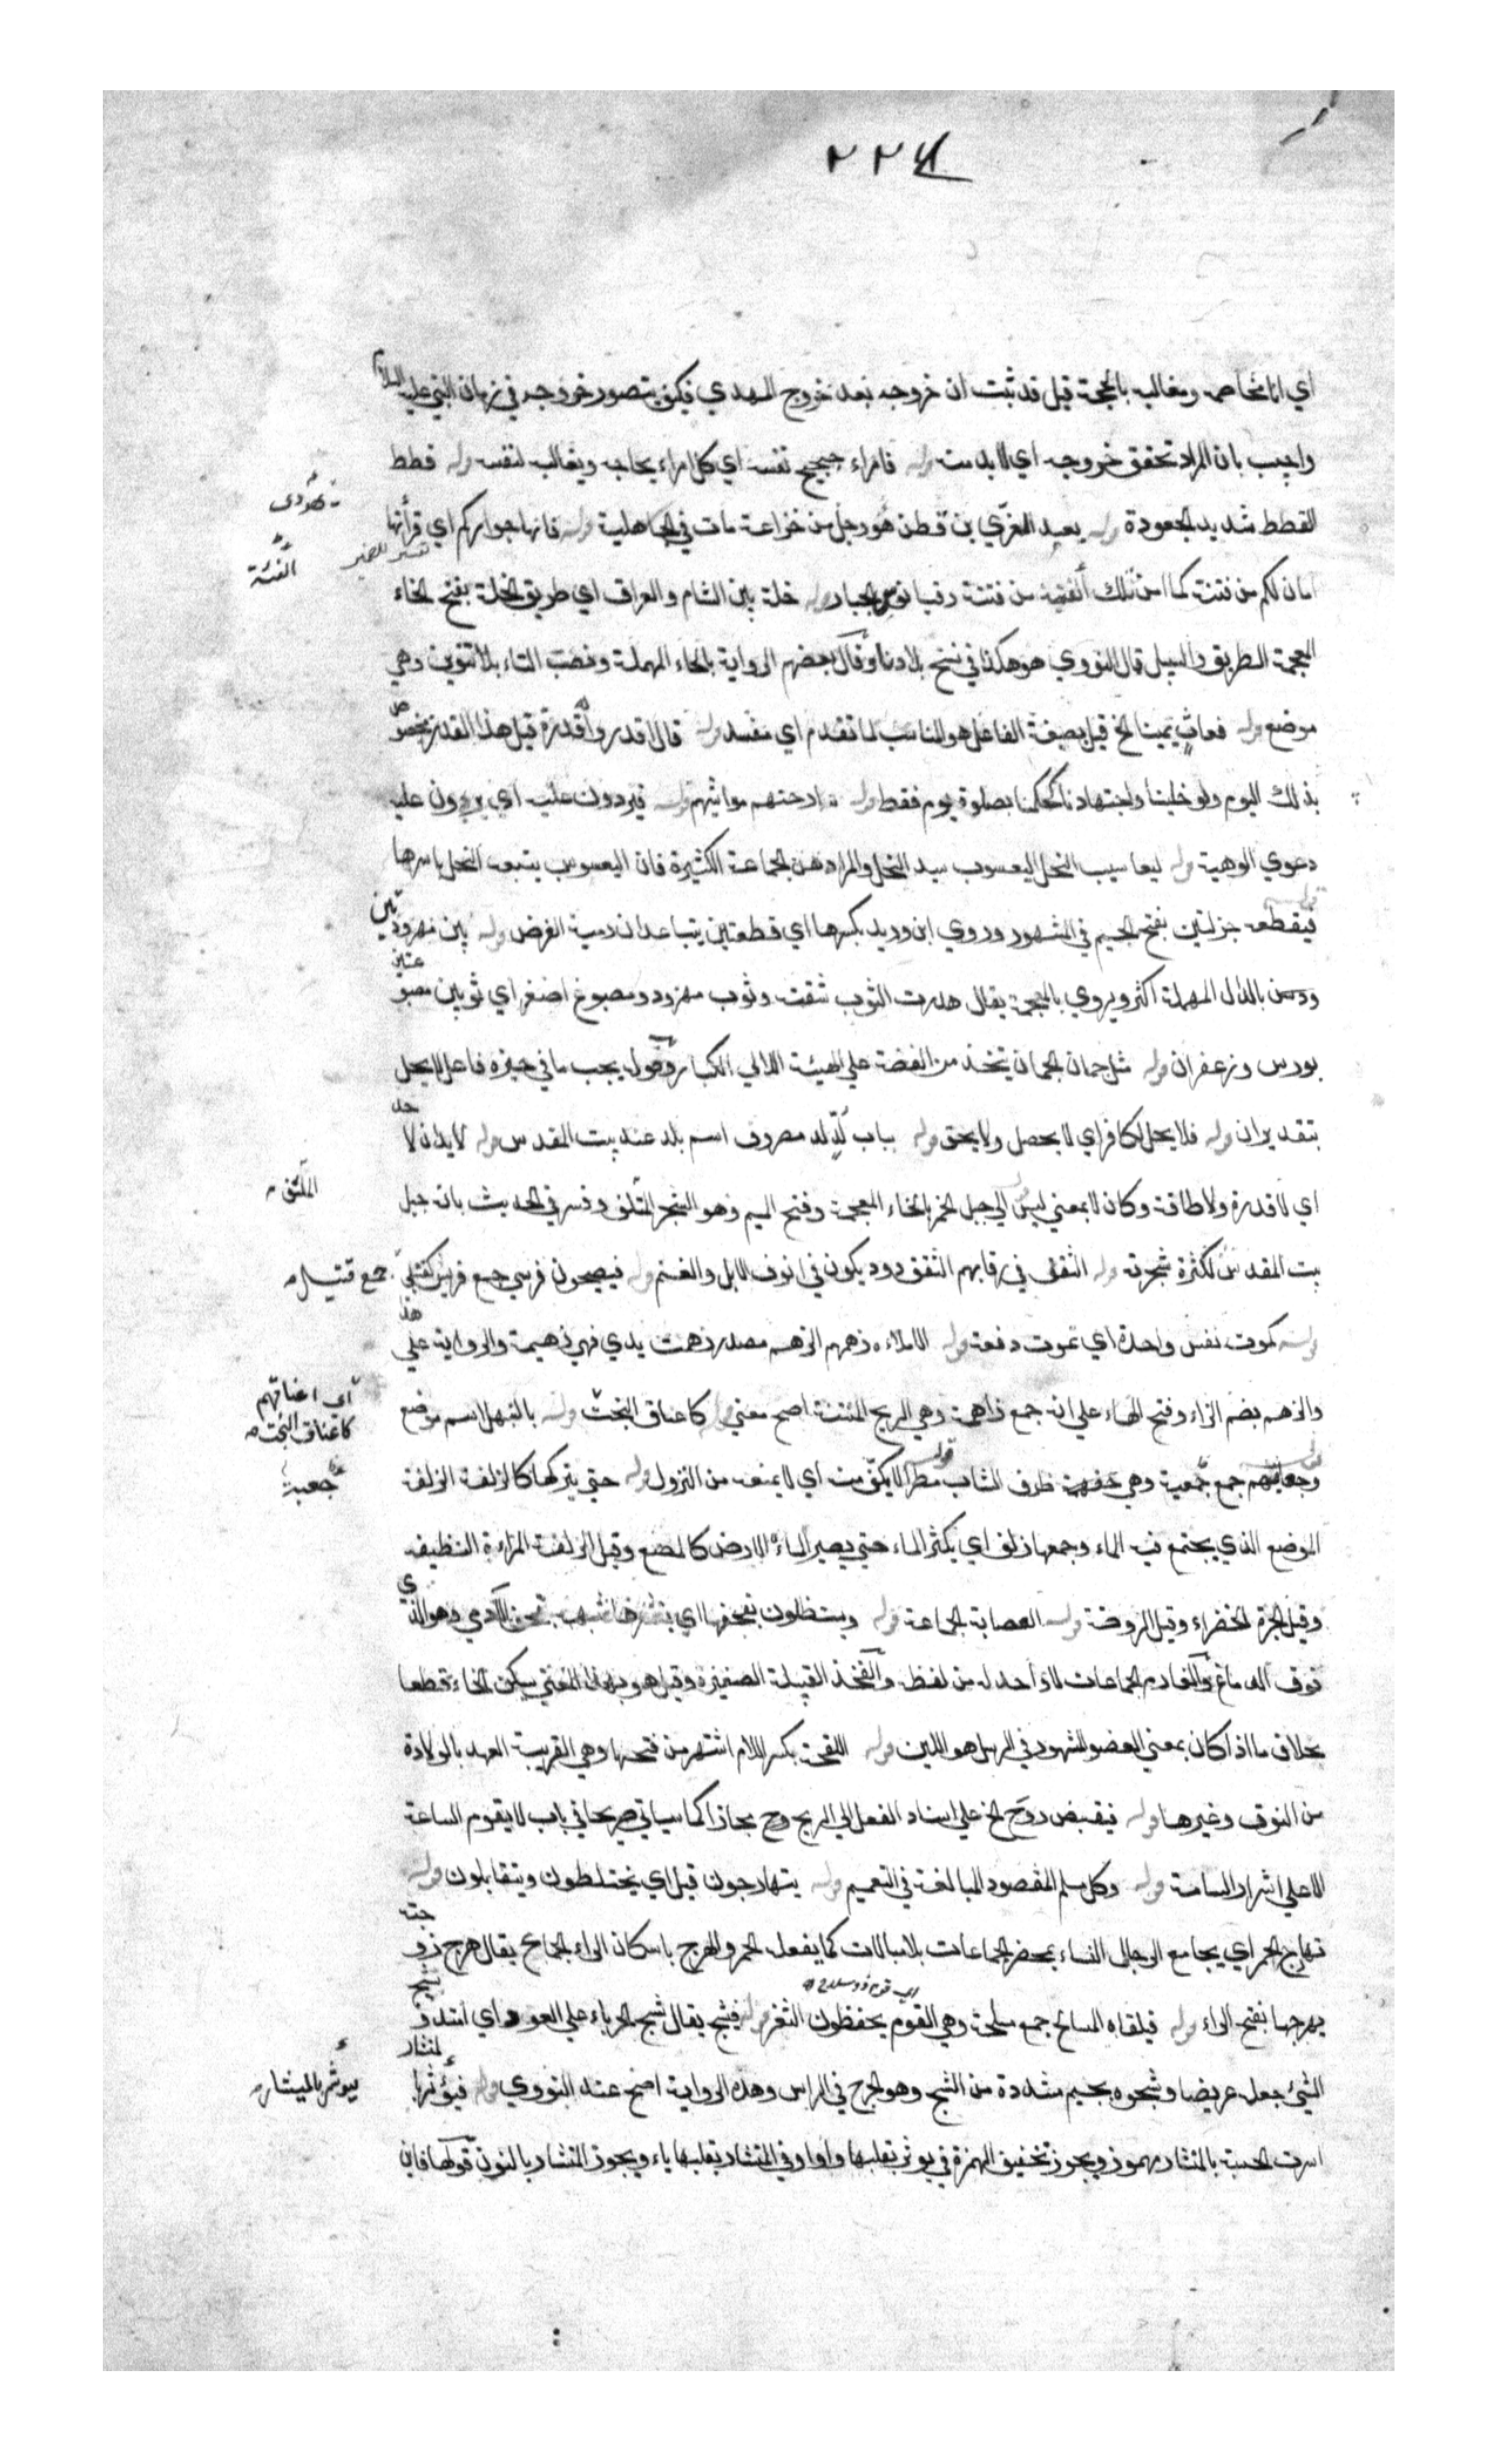 ٢٢٤
اي انا مخاصمه ومغالبه بالحجة قيل قد ثبت ان خروجه بعد خروج المهدي فكيف يتصور خروجه في زمان النبي عليه السلام
واجيب بان المراد تحقق خروجه اي لابد منه قوله فامراء حجيج نفسه اي كل امراء يحاجه ويغالبه لنفسه قوله قطط
القطط شديد الجعودة قوله بعبد العزي بن قطن هو رجل من خزاعة مات في الجاهلية قوله فانها جواركم اي قرأتها
امان لكم من فتنته كما امن تلك الفتية من فتنة دقيانوس الجبار قوله خلة بين الشام والعراق اي طريق الخلة بفتح الخاء
المعجمة الطريق والسبيل قال النووي هو هكذا في نسخ بلادنا وقال بعضهم الرواية بالحاء المهملة ونصب التاء بلا تنوين وهي
موضع قوله فعاث يمينا الخ قيل بصيغة الفاعل هو المناسب لما تقدم اي مفسد قوله قال لا قدروا قدره قيل هذا القدر مخصوص
بذلك اليوم ولو خلينا واجتهادنا لحكمنا بصلوة يوم فقط قوله سارحتهم مواشيهم قوله فيردون عليه اي يردون عليه
دعوي الوهية قوله ليعاسيب النحل اليعسوب سيد النحل والمراد هنا الجماعة الكثيرة فان اليعسوب يتبعه النحل باسرها
قوله فيقطعه جزلتين بفتح الجيم في المشهور وروي ابن دريد بكسرها اي قطعتين يتباعدان رمية الغرض قوله بين مهرودتين
بالدال المهملة اكثر ويروي بالمعجمة يقال هردت الثوب شققت وثوب مهرود ومصبوغ اصفر اي ثوبين مصبوغتين
بورس وزعفران قوله مثل جمان الجمان يتخذ من الفضة علي الهيئة اللالي الكبار قوله يجب ما في حيزه فاعل لا يحل
بتقدير ان قوله فلا يحل لكافر اي لا يحصل ولا يحق قوله بباب لد لد مصروف اسم بلد عند بيت المقدس قوله لا يدان لاحد
اي لا قدرة ولا طاقة وكان لا بمعني ليس قوله الي جبل الخمر بالخاء المعجمة وفتح الميم وهو الشجر الملتف وفسر في الحديث بانه جبل
بيت المقدس لكثرة شجرته قوله النغف في رقابهم النغف دود يكون في انوف الابل والغنم قوله فيصبحون فرسي جمع فريس كقتلي
قوله كموت نفس واحدة اي تموت دفعة قوله الا ملاءه زهمهم الزهم مصدر زهمت يدي فهي زهيمة والرواية علي هذا
والزهم بضم الزاء وفتح الهاء علي انه جمع زاهمة وهي الريح المنتنة اصح معني قوله كاعناق البخت قوله بالنهبل اسم موضع
قوله وجعابهم جمع جعبة وهي ظرف النشاب قوله مطرا لا يكن منه اي لا يمنعه من النزول قوله حتي يتركها كالزلفة الزلفة
الموضع الذي يجتمع فيه الماء وجمعها زلف اي يكثر الماء حتي يصير الماء الارض كالمصنع وقيل الزلفة المراءة النظيفة
وقيل الجرة الخضراء وقيل الروضة قوله العصابة الجماعة قوله ويستظلون بقحفها اي بقشرها شبهه بقحف الادمي وهو الذي
فوق الدماغ والفئام الجماعات لا واحد له من لفظه والفخذ القبيلة الصغيرة وقيل هو بهذا المعني يسكن الخاء قطعا
بخلاف ما اذا كان بمعني العضو المشهور في الرسل هو اللبن قوله اللقحة بكسر اللام اشتهر من فتحها وهي القريبة العهد بالولادة
من النوق وغيرها قوله فيقبض روح الخ علي اسناد الفعل الي الريح مجازا كما سياتي صريحا في باب لا يقوم الساعة
الا علي اشرار الساعة قوله وكل مسلم المقصود المبالغة في التعميم قوله يتهارجون قيل اي يختلطون ويتقابلون قوله
تهارج الحمر اي يجامع الرجال النساء بمحضر الجماعات بلا مبالات كما يفعله الحمر والهرج باسكان الراء الجماع يقال هرج زوجته
يهرجها بفتح الراء قوله فيلقاه المسالح جمع مسلحة وهي القوم يحفظون الثغر قوله فيشبح يقال شبح الحرباء علي العود اي امتد وشبح
الشيء جعله عريضا وشجوه بجيم مشددة من الشج وهو الجرح في الراس وهذه الرواية اصح عند النووي قوله فيؤشر بالمنشار
اسرت الخشبة بالمنشار مهموز ويجوز تخفيف الهمزة في يوشر بقلبها واوا وفي المنشار بقلبها ياء ويجوز المنشار بالنون قولها فاين
الملتف
جمع قتيل
اي اعناقهم
كاعناق البخت
جعبة
اي قوم ذو سلاح
يوشر بالميشار